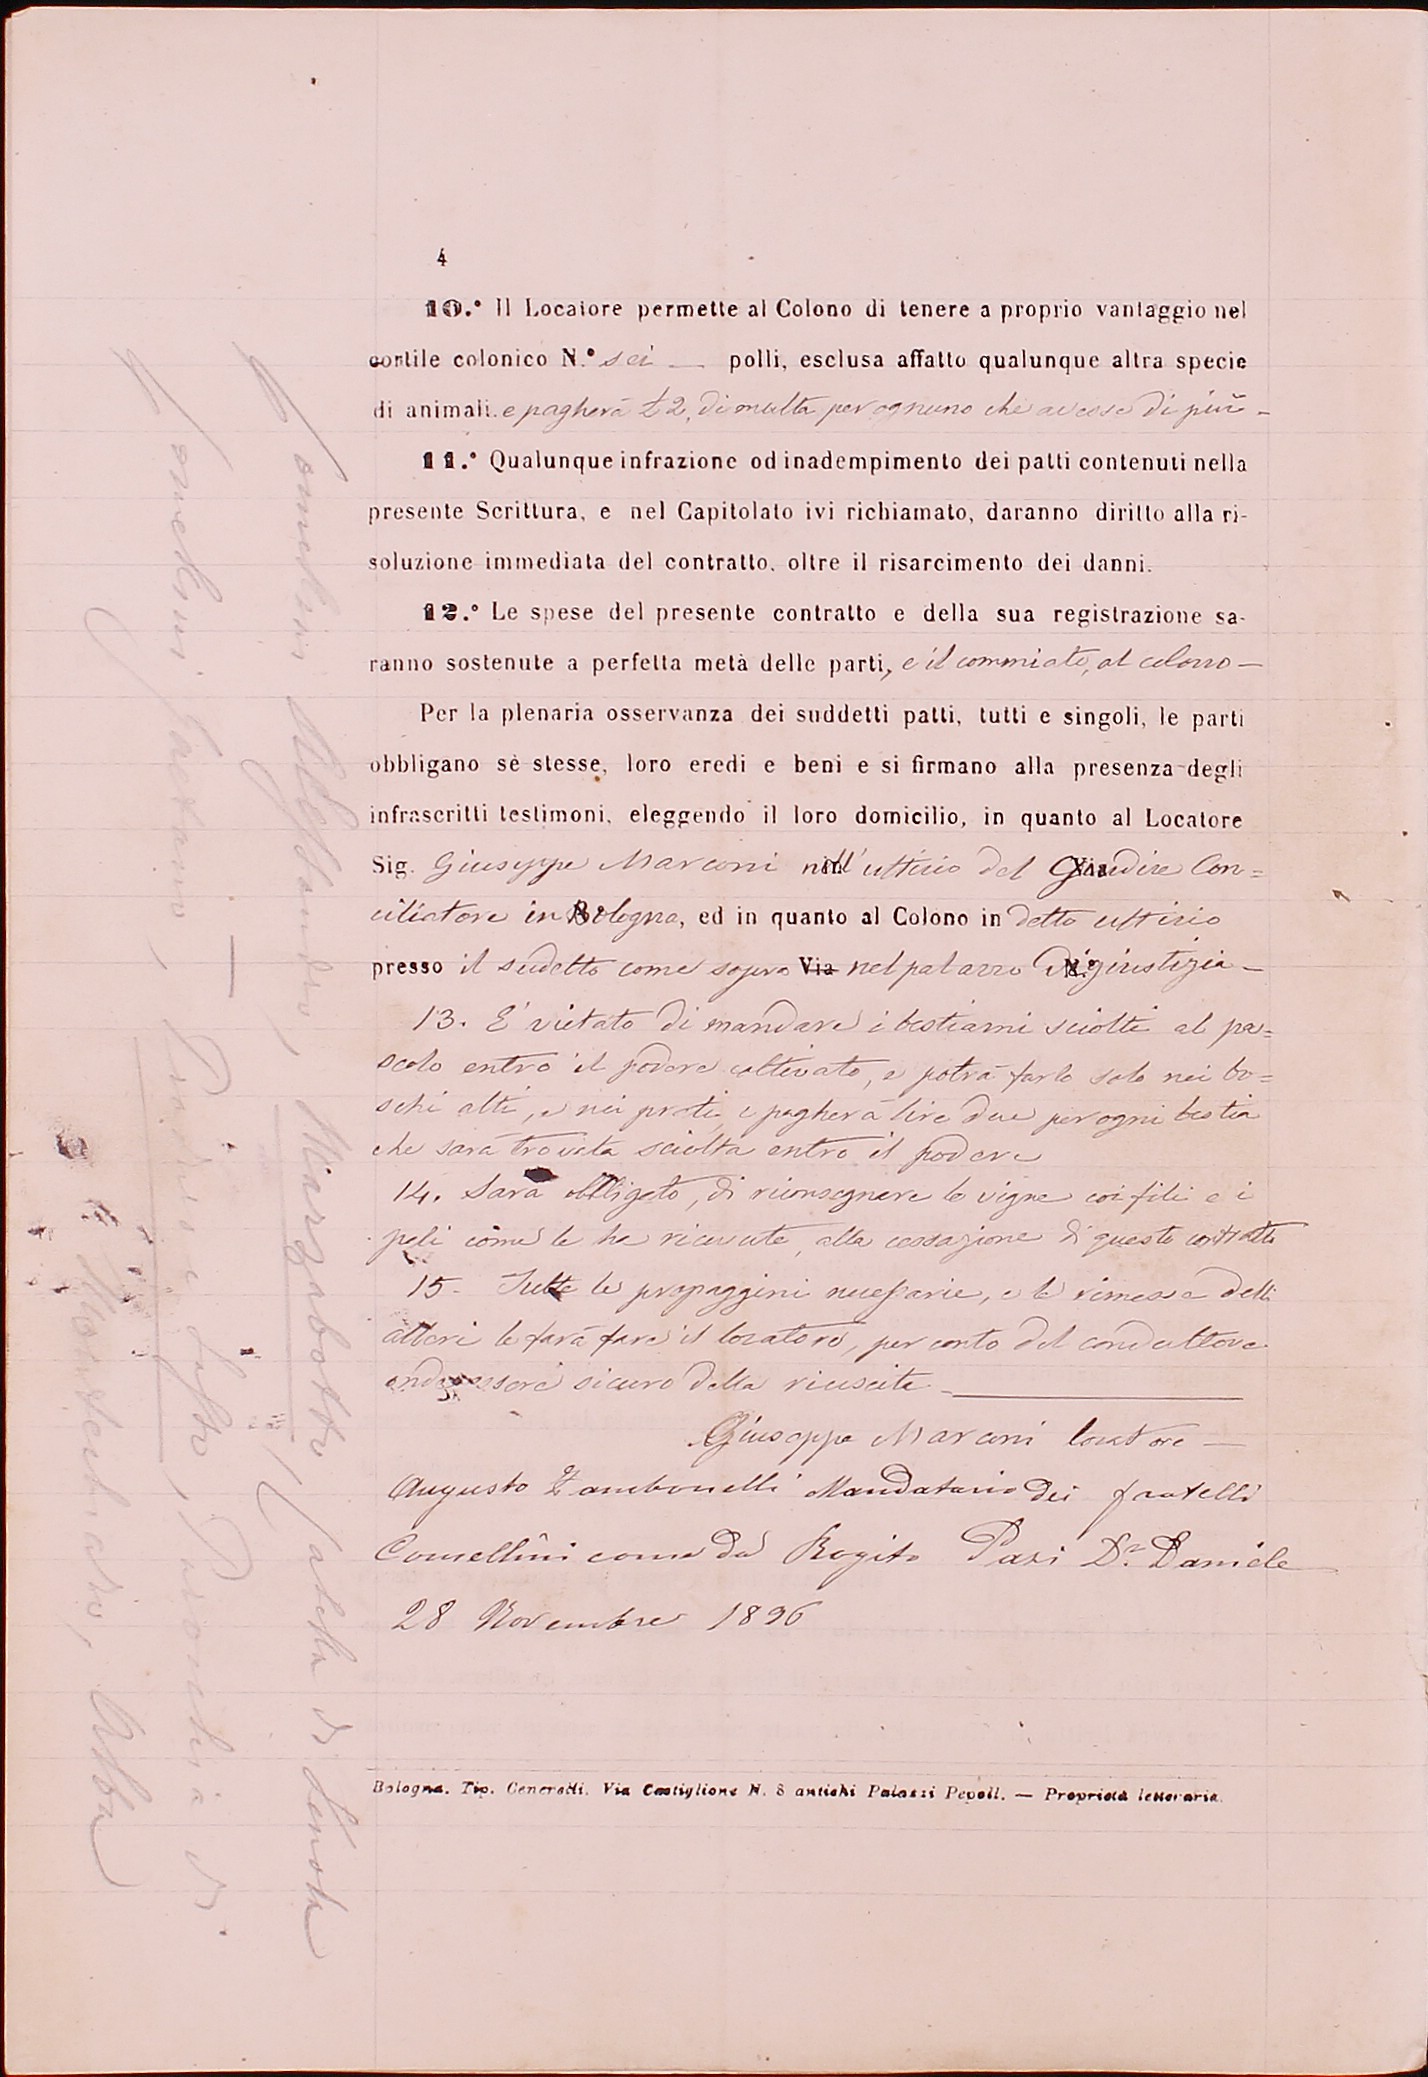 4
10.° Il Locatore permette al Colono di tenere a proprio vantaggio nel
cortile colonico N.° sei — polli, esclusa affatto qualunque altra specie
di animali. e pagherà £ 2, di multa per ognuno che avesse di più —
11.° Qualunque infrazione od inadempimento dei patti contenuti nella
presente Scrittura, e nel Capitolato ivi richiamato, daranno diritto alla ri-
soluzione immediata del contratto, oltre il risarcimento dei danni.
12.° Le spese del presente contratto e della sua registrazione sa-
ranno sostenute a perfetta metà delle parti, e il commiato, al colono —
Per la plenaria osservanza dei suddetti patti, tutti e singoli, le parti
obbligano sè stesse, loro eredi e beni e si firmano alla presenza degli
infrascritti testimoni, eleggendo il loro domicilio, in quanto al Locatore
Sig. Giuseppe Marconi nell'ufficio del Giudice Con=
ciliatore in Bologna, ed in quanto al Colono in detto ufficio
presso il sudetto come sopra Via nel palazzo di giustizia —
13. E' vietato di mandare i bestiami sciolti al pa=
scolo entro il podere coltivato, e potrà farlo solo nei bo=
schi alti, e nei prati, e pagherà lire due per ogni bestia
che sarà trovata sciolta entro il podere
14. Sarà obbligato, di riconsegnare le vigne coi fili e i
pali come le ha ricevute, alla cessazione di questo contratto
15. Tutte le propaggini necessarie, e le rimesse delli
alberi le farà fare il locatore, per conto del conduttore
onde essere sicuro della riuscita
Giuseppe Marconi locatore —
Augusto Zambonelli Mandatario dei fratelli
Comellini come da Rogito Pasi Dr. Daniele
28 Novembre 1896
Bologna. Tip. Generelli. Via Castiglione N. 8 antichi Palazzi Pepoli. — Proprietà letteraria.
Comellini Alessandro, Marzabotto
Comellini Gaetano, — Pradure e Sasso, Parochia di